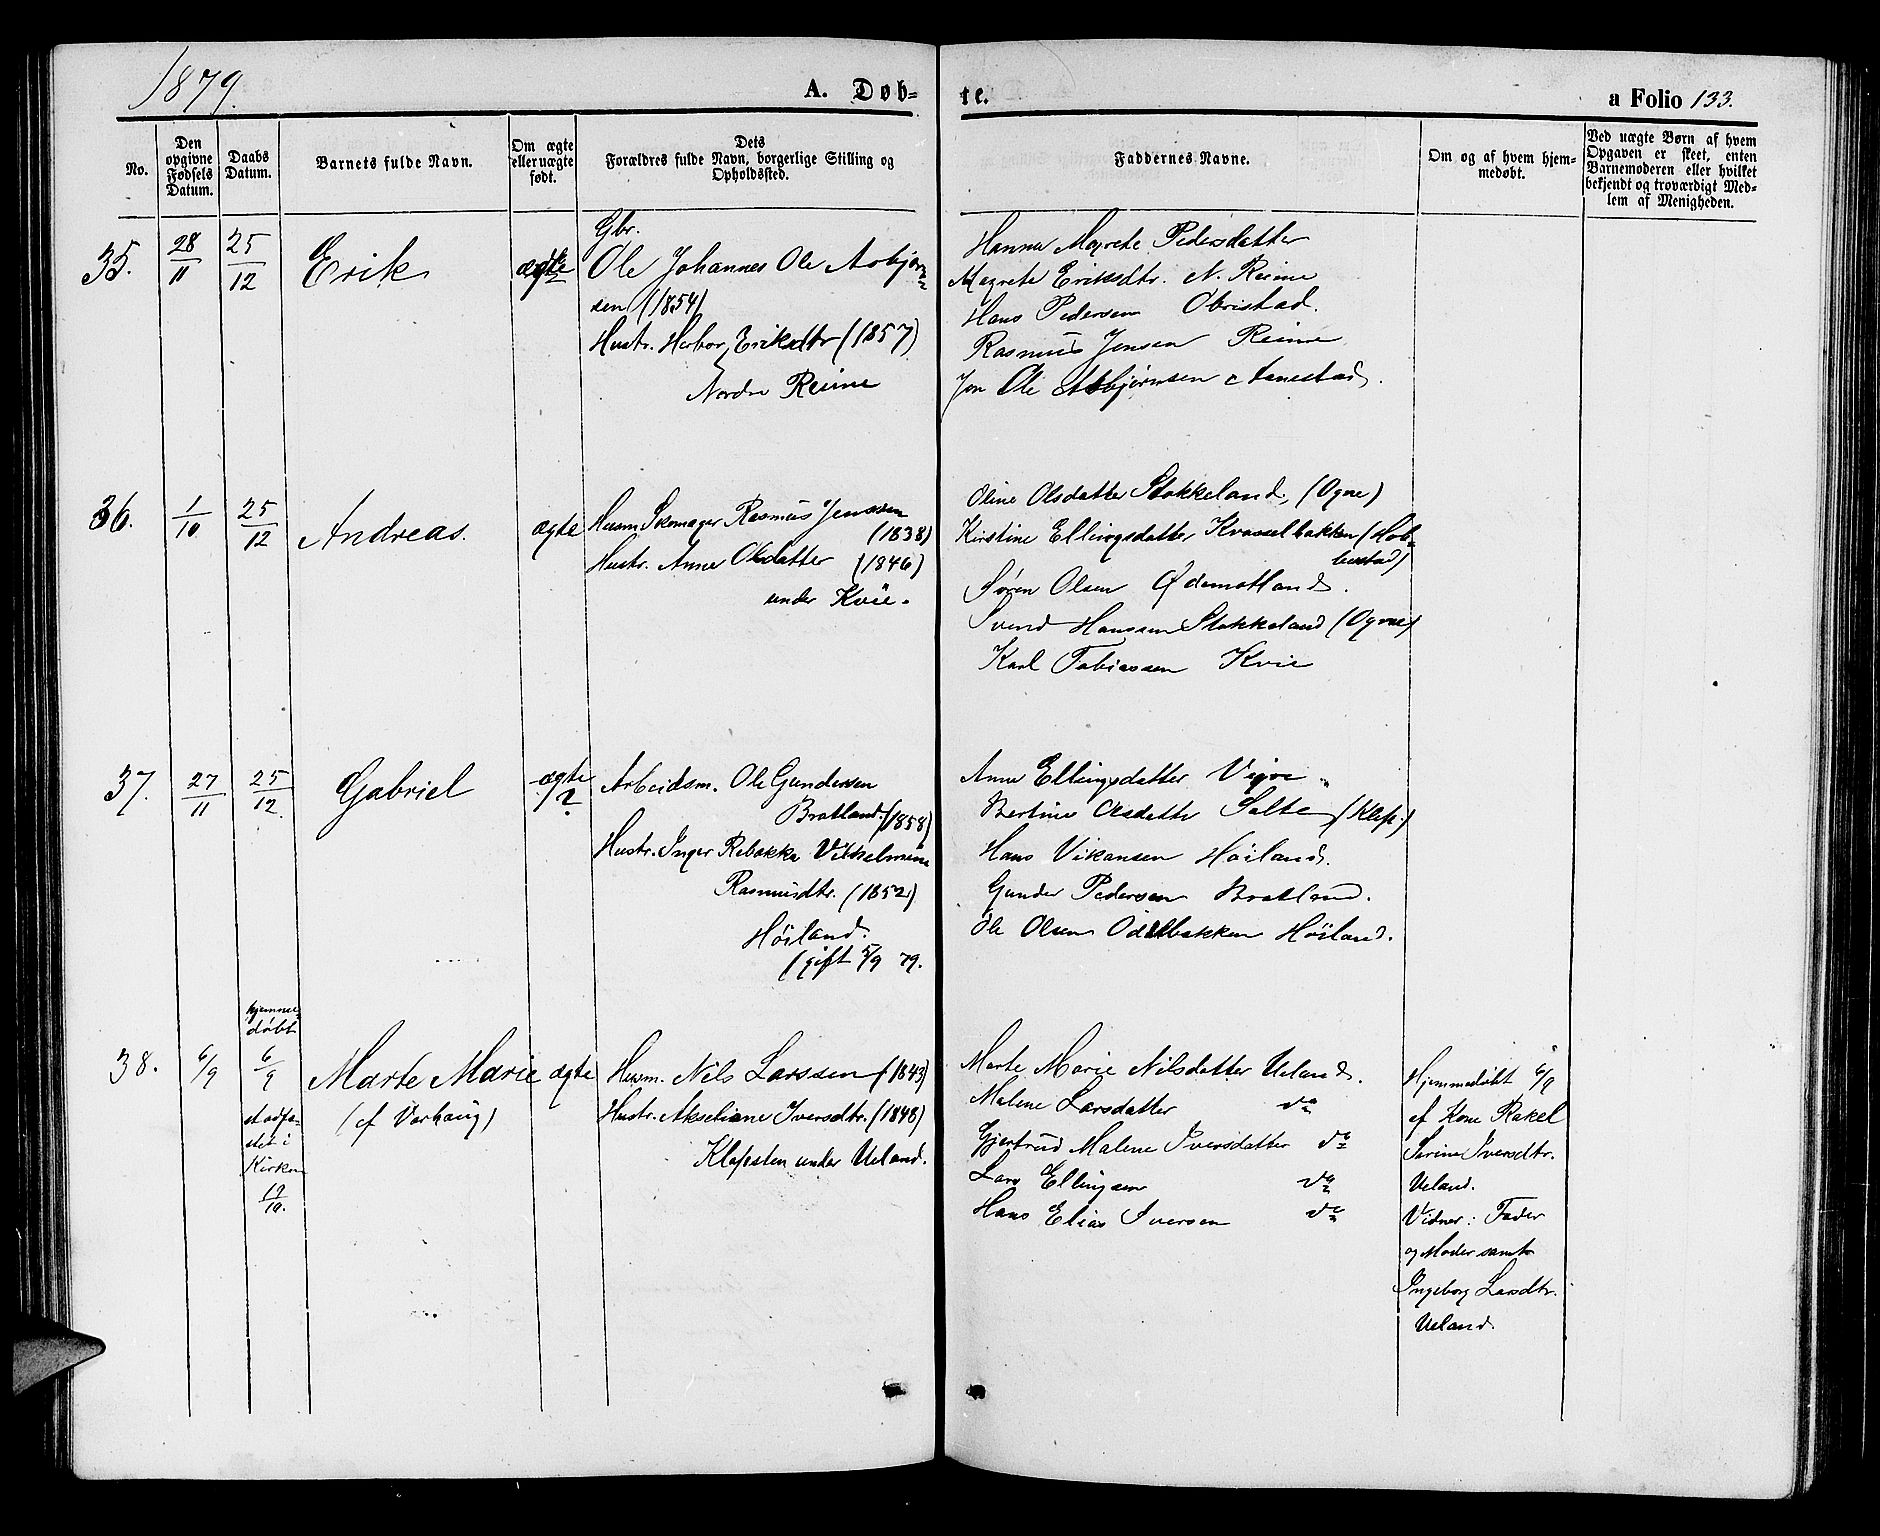 1879.
A. Døb-
te.
a Folio 133.
No.
Den
opgivne
Fødsels
Datum.
Daabs
Datum.
Barnets fulde Navn.
Om ægte
eller uægte
født.
Dets
Forældres fulde Navn, borgerlige Stilling og
Opholdssted.
Faddernes Navne.
Om og af hvem hjem-
medøbt.
Ved uægte Børn af hvem
Opgaven er skeet, enten
Barnemoderen eller hvilket
bekjendt og troværdigt Med-
lem af Menigheden.
35.
28/11
25/12
Erik
ægte
Gbr.
Ole Johannes Ole Asbjørn=
sen (1854)
Hustr. Herbor Eriksdtr (1857)
Nordre Reime
Hanna Magrete Pedersdatter
Magrete Eriksdtr. N. Reime
Hans Pedersen Obristad.
Rasmus Jensen Reime
Jon Ole Asbjørnsen Aanestad.
36.
1/10
25/12
Andreas.
ægte
Husm Skomager Rasmus Jenssen
(1838)
Hustr. Anne Olsdatter (1846)
under Kvie.
Oline Olsdatter Stokkeland, (Ogne)
Kirstine Ellingsdatter Kvasselbakken (Hob=
berstad)
Søren Olsen Ødemotland.
Svend Hanssen Stokkeland (Ogne)
Karl Tobiassen Kvie
37.
27/11
25/12.
Gabriel
ægte
?
Arbeidsm. Ole Gundersen
Bratland. (1858)
Hustr. Inger Rebekka Vilhelmine
Rasmusdtr. (1852)
Høiland.
(gift 5/9 79.
Anne Ellingsdatter Vigre
Bertine Olsdatter Salte (Klep.)
Hans Vikansen Høiland.
Gunder Pedersen Bratland.
Ole Olsen Odelbakken Høiland.
38.
6/9
hjemme=
døbt
6/9
stadfæ-
stet i
Kirken
19/10.
Marte Marie
(cf Varhaug)
ægte
Husm. Nils Larssen (1843)
Hustr. Akseliane Iversdtr. (1848)
Klapsten under Ueland.
Marte Marie Nilsdatter Ueland.
Malene Larsdatter do
Gjertrud Malene Iversdatter do
Lars Ellingsen do
Hans Elias Iversen do
Hjemmedøbt 6/9
af Kone Rakel
Serine Iversdtr.
Ueland.
Vidner: Fader
og Moder samt
Ingeborg Larsdtr.
Ueland.